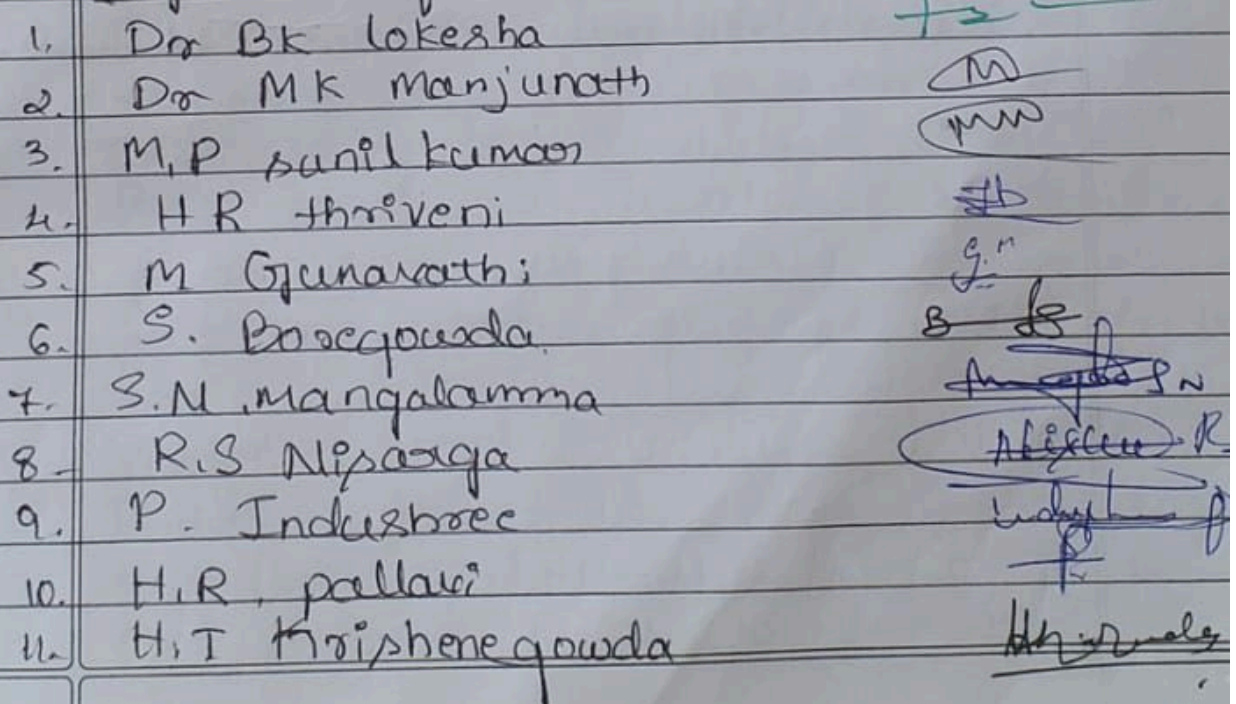 1. Dr BK lokesha
2. Dr MK Manjunath M
3. M.P sunil kumar
4. H R thriveni
5. M Gunavathi G.M
6. S. Boregowda B
7. S.N. Mangalamma S N
8. R.S Nisarga R
9. P. Indushree
10. H.R. pallavi
11. H.T Krishenegowda